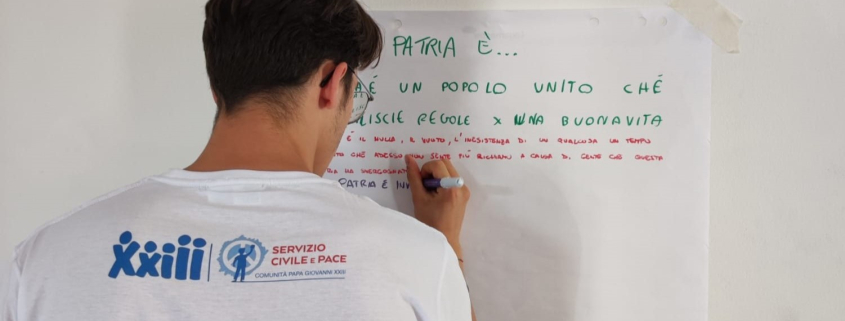 PATRIA È...
È UN POPOLO UNITO CHÉ
LISCIE REGOLE X UNA BUONAVITA
È IL NULLA, IL VUOTO, L'INESISTENZA DI UN QUALCOSA UN TEMPO
CHÉ ADESSO NON SENTE PIÙ RICHIAMI A CAUSA DI GENTE CHE QUESTA
HA
PATRIA È
xxiii
SERVIZIO
CIVILE e PACE
COMUNITÀ PAPA GIOVANNI XXIII